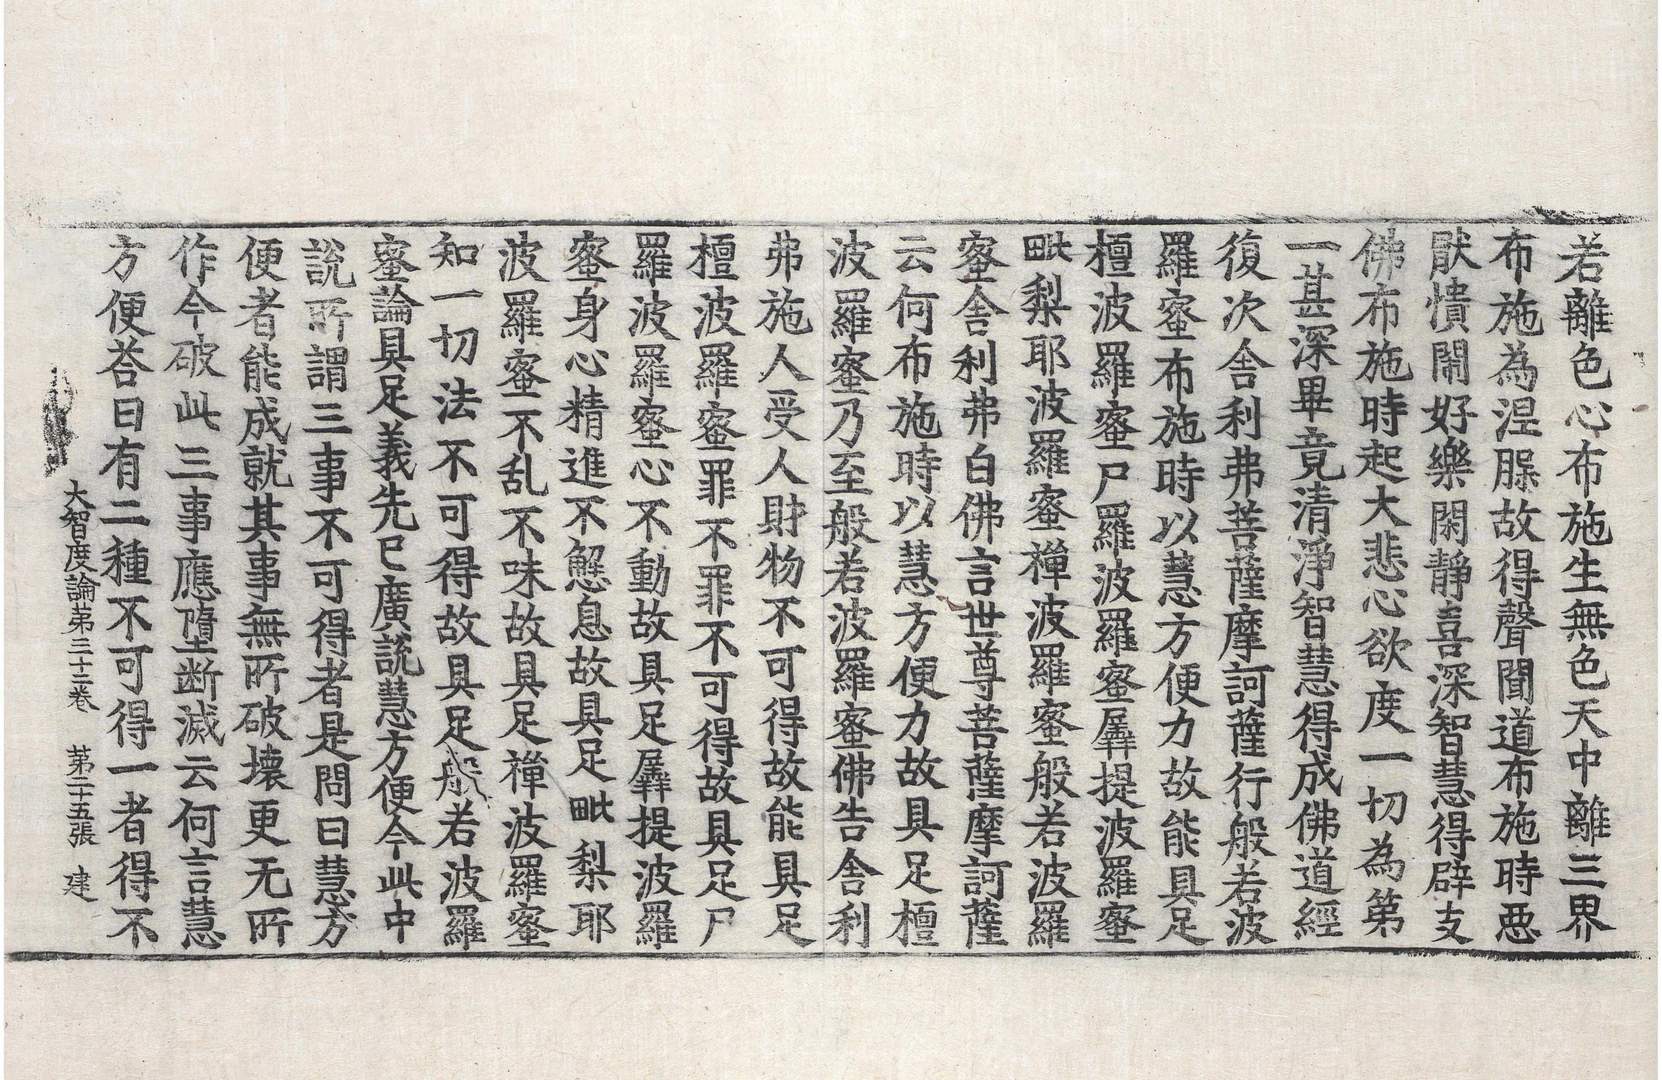 若離色心布施生無色天中離三界
布施為涅脲故得聲聞道布施時惡
猒憒閙好樂閑靜喜深智慧得辟支
佛布施時起大悲心欲度一切為第
一甚深畢竟清淨智慧得成佛道經
復次舍利弗菩薩摩訶薩行般若波
羅蜜布施時以慧方便力故能具足
檀波羅蜜尸羅波羅蜜羼提波羅蜜
毗梨耶波羅蜜禪波羅蜜般若波羅
蜜舍利弗白佛言世尊菩薩摩訶薩
云何布施時以慧方便力故具足檀
波羅蜜乃至般若波羅蜜佛告舍利
弗施人受人財物不可得故能具足
檀波羅蜜罪不罪不可得故具足尸
羅波羅蜜心不動故具足羼提波羅
蜜身心精進不懈息故具足毗梨耶
波羅蜜不乱不味故具足禪波羅蜜
知一切法不可得故具足般若波羅
蜜論具足義先已廣說慧方便今此中
說所謂三事不可得者是問曰慧方
便者能成就其事無所破壞更无所
作今破此三事應墮断滅云何言慧
方便荅曰有二種不可得一者得不
大智度論第三十二卷 第二十五張 建